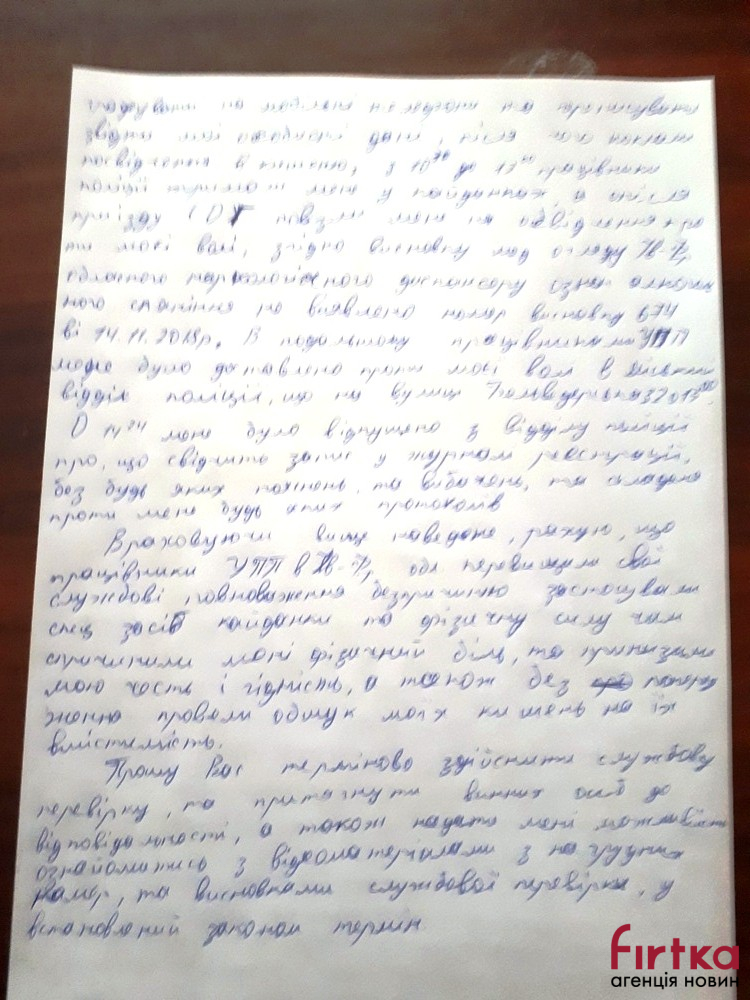 звідти мої особисті дані, після чого поклали
посвідчення в кишеню, з 10³⁰ до 13⁰⁰ працівники
поліції тримали мене у кайданках, а після
приїзду СОГ повезли мене на освідчення про
ти моєї волі, згідно висновку мед огляду Ів-Фр
обласного наркологічного диспансеру ознак алкоголь
ного сп'яніння не виявлено номер висновку 674
ві 14.11.2018р. В подальшому працівниками УПП
мене було доставлено проти моєї волі в
відділ поліції, що на вулиці Бельведерська 32 о 13
О 14²⁴ мене було відпущено з відділу поліції
про, що свідчить запис у журналі реєстрацій,
без будь яких пояснень, та вибачень, та складання
проти мене будь яких протоколів
Враховуючи вище наведене, рахую, що
працівники УПП в Ів-Фр, обл перевищили свої
службові повноваження безпричинно застосували
спец засіб кайданки та фізичну силу чим
спричинили мені фізичний біль, та принизили
мою честь і гідність, а також без поперед
ження провели обшук моїх кишень на їх
вмістимість.
Прошу Вас терміново здійснити службову
перевірку, та притягнути винних осіб до
відповідальності, а також надати мені можливість
ознайомитись з відеоматеріалами з нагрудних
камер, та висновками службової перевірки, у
встановлений законом термін
firtka
агенція новин